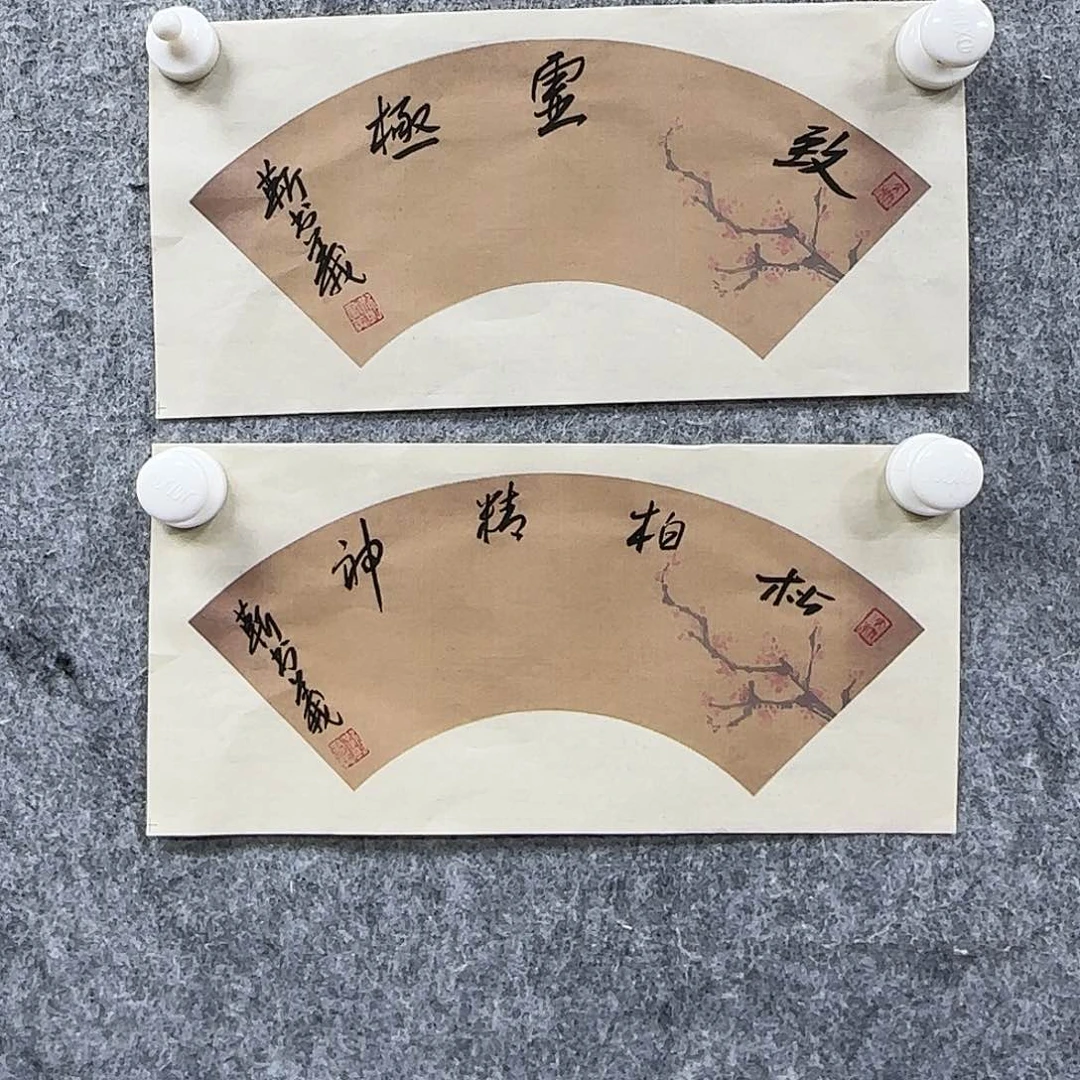 致虚極
靳书義
松柏精神
靳书義